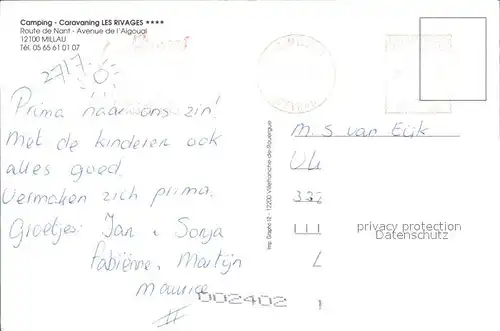 Camping - Caravaning LES RIVAGES ★★★★
Route de Nant - Avenue de l'Aigoual
12100 MILLAU
Tél. 05 65 61 01 07
27/7.
Prima naar ons zin!
Met de kinderen ook
alles goed.
Vermaken zich prima.
Groetjes: Jan + Sonja
Fabiënne, Martijn
Maurice
M. S van Eijk
privacy protection
Datenschutz
Imp. Graphi 12 - 12200 Villefranche-de-Rouergue
002402